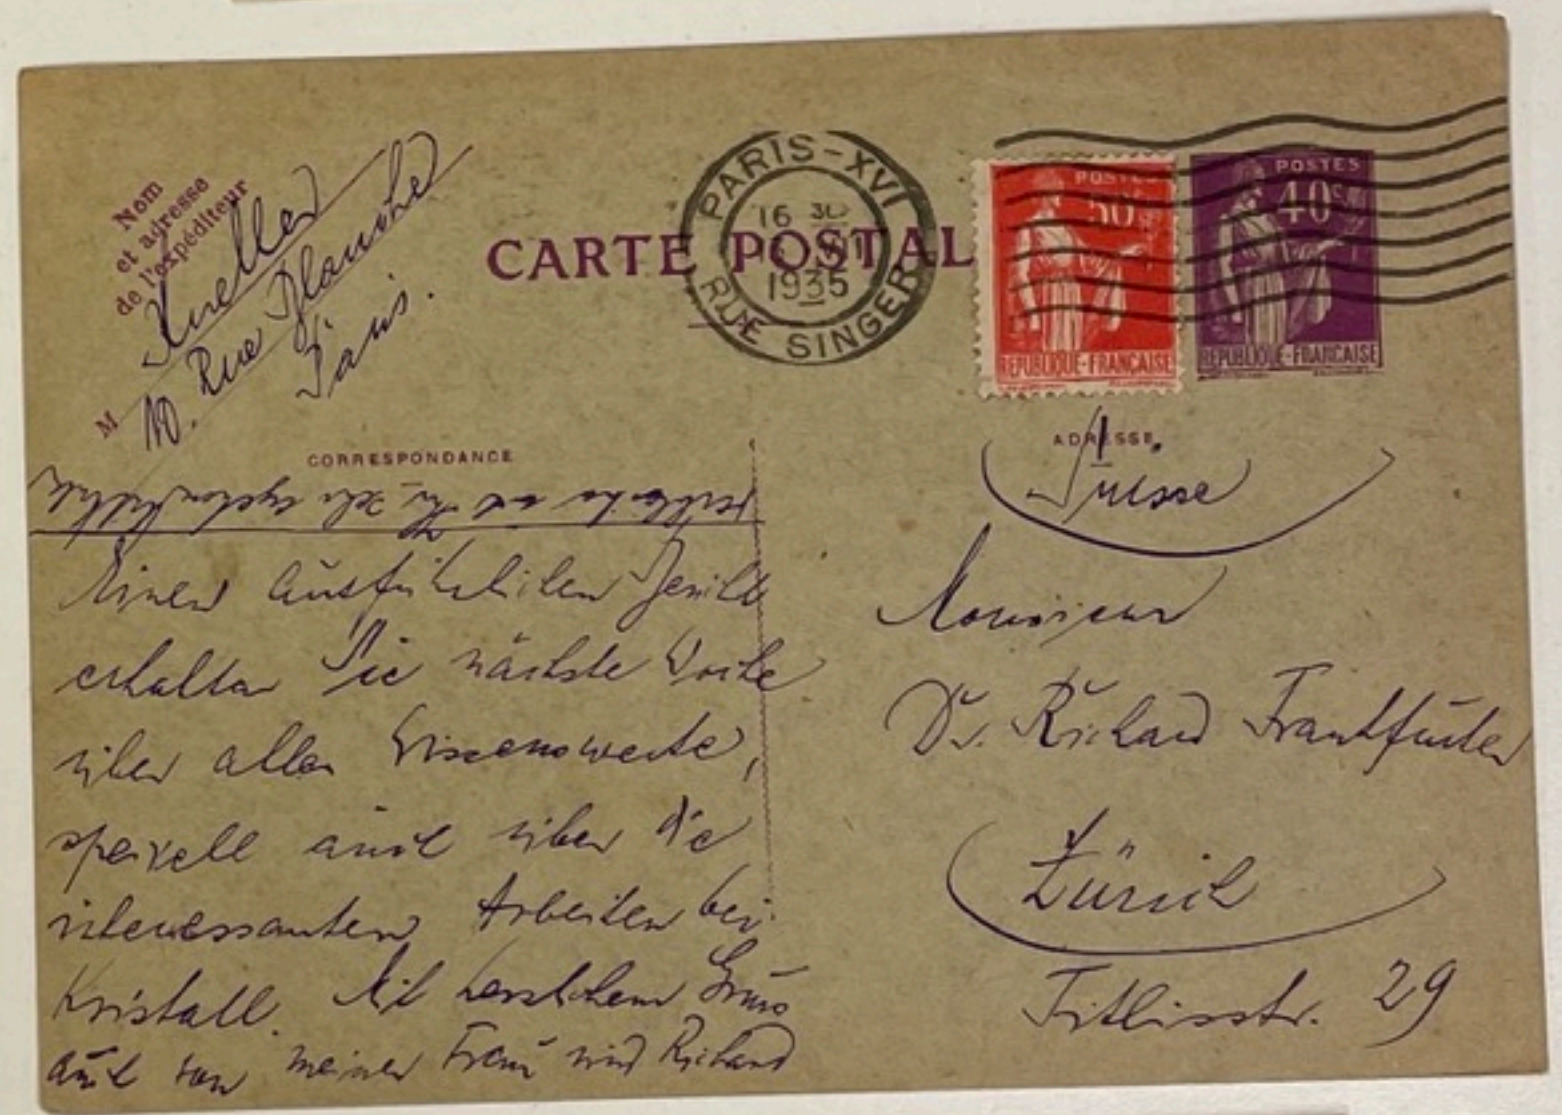 Nom
et adresse
de l'expéditeur
M
10. Rue Blanche
Paris.
CARTE POSTALE
PARIS-XVI
16 30
1935
RUE SINGER
POSTES
50c
REPUBLIQUE-FRANÇAISE
POSTES
40c
REPUBLIQUE-FRANÇAISE
CORRESPONDANCE
Einen ausführlichen Bericht
erhalten Sie nächste Woche
über alles Wissenswerte,
speziell auch über die
interessanten Arbeiten bei
Kristall. Mit herzlichem Gruss
auch von meiner Frau und Richard
ADRESSE
Suisse
Monsieur
Dr. Richard Frankfurter
Zürich
Titlisstr. 29